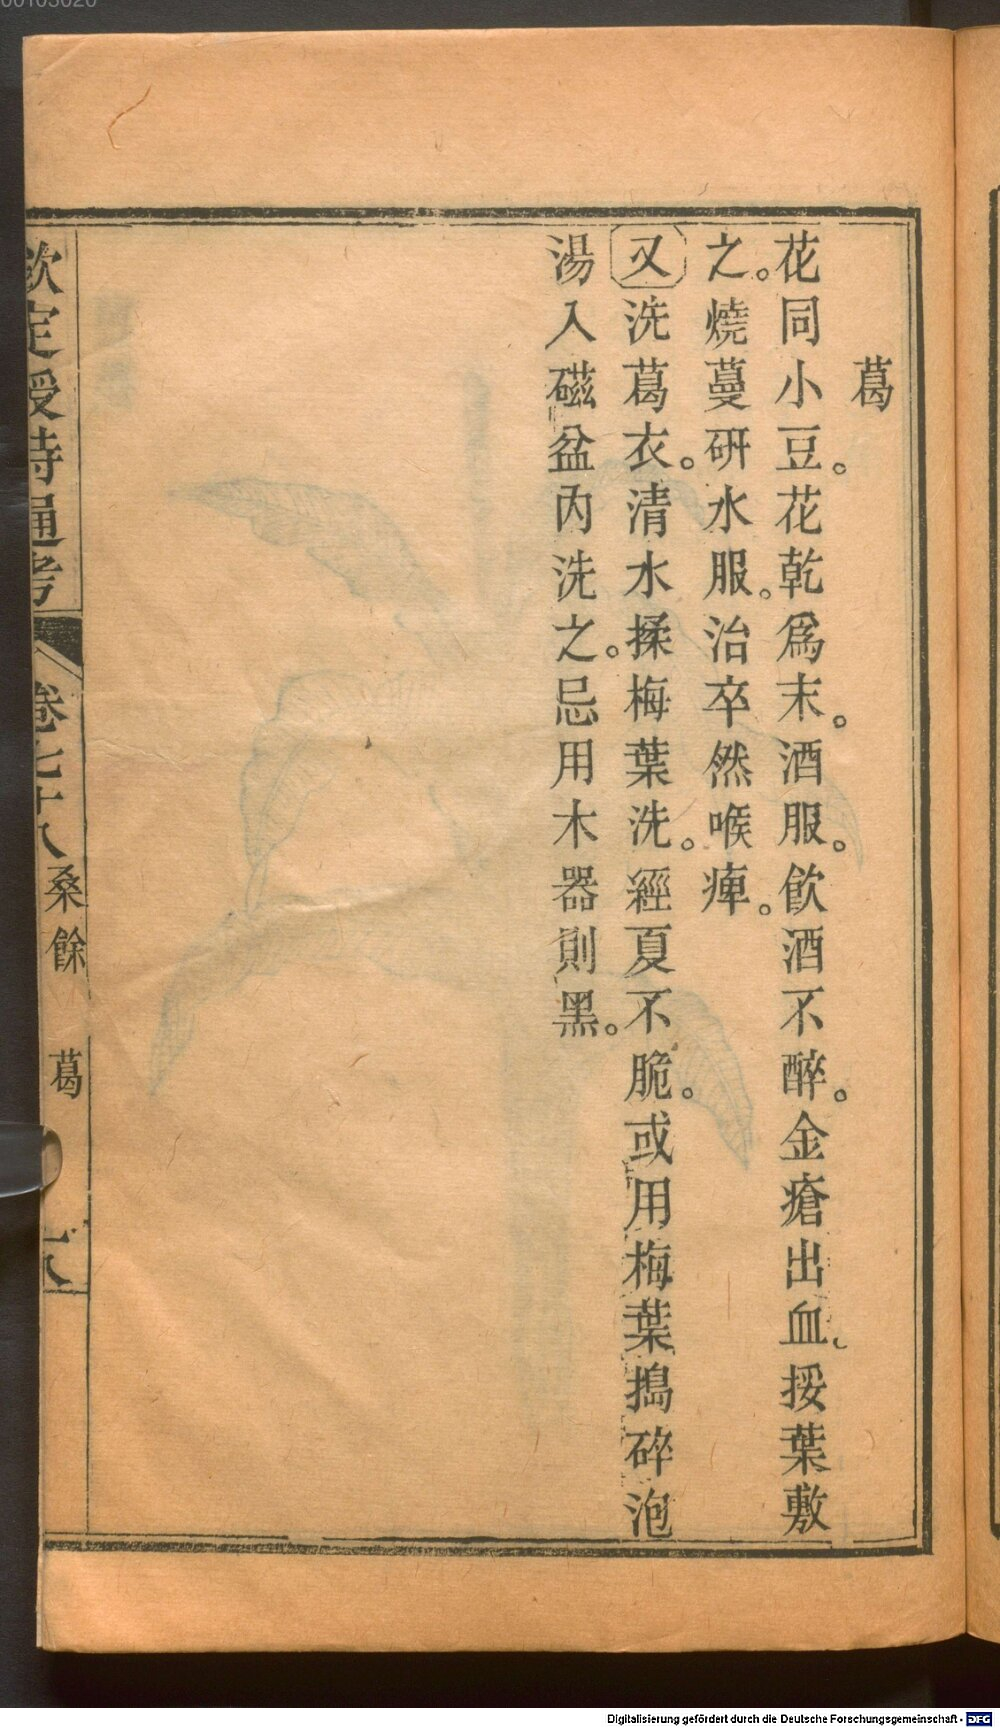 葛
花同小豆。花乾爲末。酒服。飲酒不醉。金瘡出血。挼葉敷
之。燒蔓研水服。治卒然喉痺。
又洗葛衣。清水揉梅葉洗。經夏不脆。或用梅葉搗碎泡
湯入磁盆內洗之。忌用木器則黑。
欽定授時通考 卷七十八 桑餘 葛
Digitalisierung gefördert durch die Deutsche Forschungsgemeinschaft - DFG